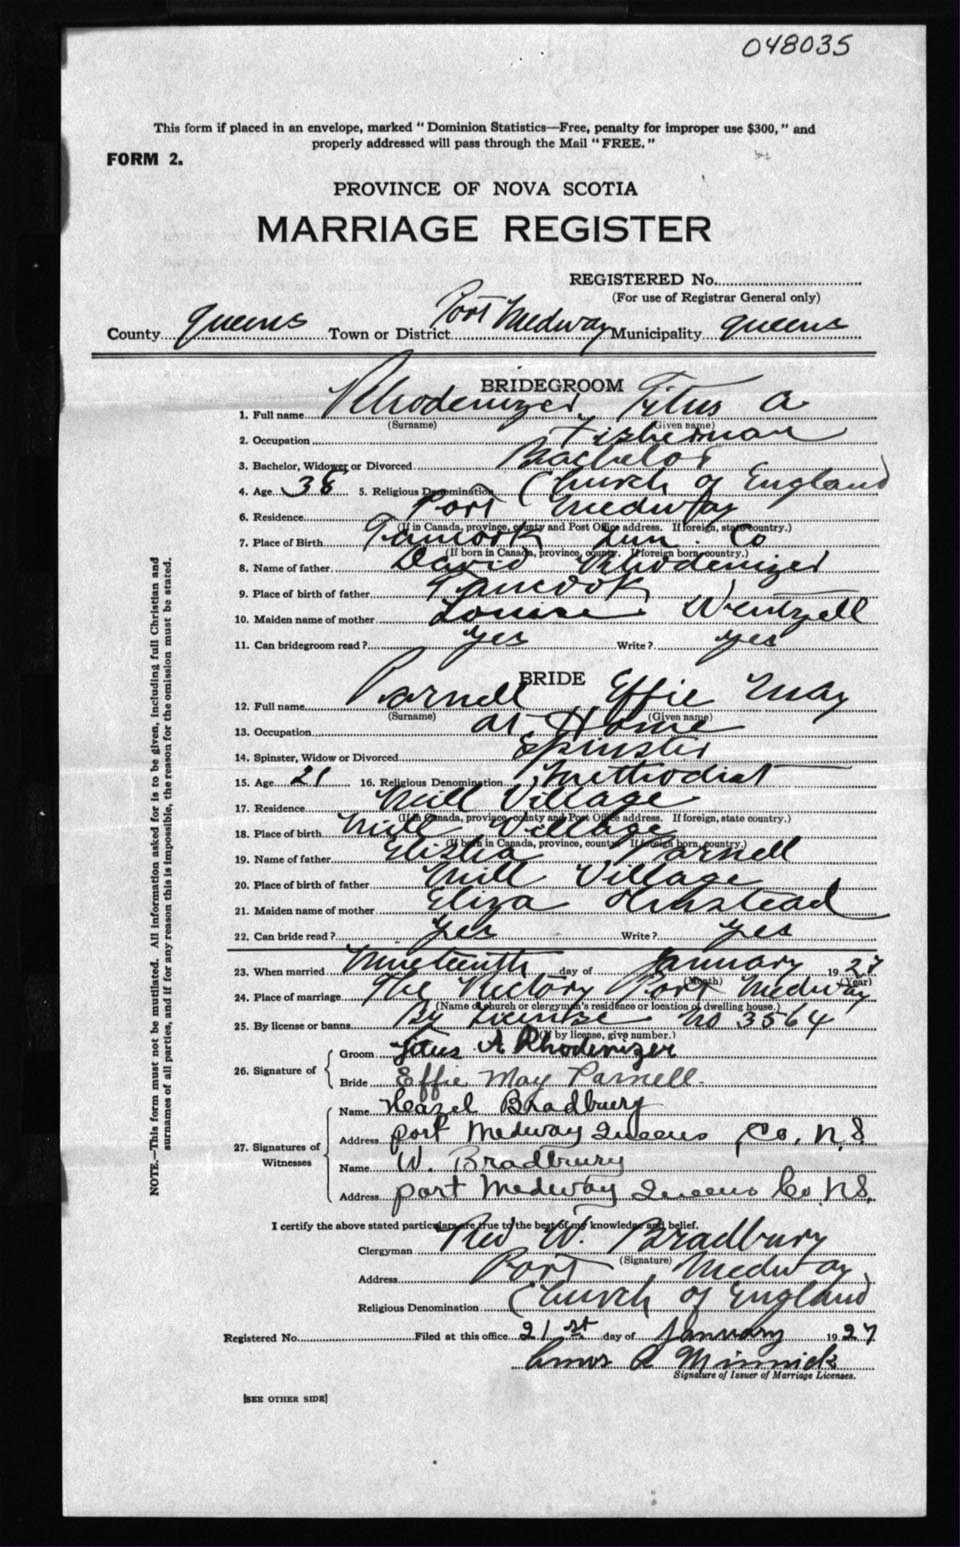 048035
This form if placed in an envelope, marked " Dominion Statistics—Free, penalty for improper use $300, " and
properly addressed will pass through the Mail " FREE. "
FORM 2.
PROVINCE OF NOVA SCOTIA
MARRIAGE REGISTER
REGISTERED No.
(For use of Registrar General only)
County Queens Town or District Port Medway Municipality Queens
BRIDEGROOM
1. Full name Rhodenizer, Titus A
(Surname) (Given name)
2. Occupation Fisherman
3. Bachelor, Widower or Divorced Bachelor
4. Age 38 5. Religious Denomination Church of England
6. Residence Port Medway
(If in Canada, province, county and Post Office address. If foreign, state country.)
7. Place of Birth Tancook Lun. Co
(If born in Canada, province, county. If foreign born, country.)
8. Name of father David Rhodenizer
9. Place of birth of father Tancook
10. Maiden name of mother Louise Wentzell
11. Can bridegroom read? yes Write? yes
BRIDE
12. Full name Parnell Effie May
(Surname) (Given name)
13. Occupation at Home
14. Spinster, Widow or Divorced Spinster
15. Age 21 16. Religious Denomination Methodist
17. Residence Mill Village
(If in Canada, province, county and Post Office address. If foreign, state country.)
18. Place of birth Mill Village
(If born in Canada, province, county. If foreign born, country.)
19. Name of father Elisha Parnell
20. Place of birth of father Mill Village
21. Maiden name of mother Eliza Olmstead
22. Can bride read? Yes Write? yes
23. When married Nineteenth day of January 1927
(Month) (Year)
24. Place of marriage The Rectory Port Medway
(Name of church or clergyman's residence or location of dwelling house.)
25. By license or banns By License No 3564
(If by license, give number.)
26. Signature of
Groom Titus A Rhodenizer
Bride Effie May Parnell.
27. Signatures of Witnesses
Name Hazel Bradbury
Address Port Medway Queens Co, N.S
Name W. Bradbury
Address Port Medway Queens Co N.S.
I certify the above stated particulars are true to the best of my knowledge and belief.
Clergyman Rev W. Bradbury
(Signature)
Address Port Medway
Religious Denomination Church of England
Registered No. Filed at this office 21st day of January 1927
Minnick
Signature of Issuer of Marriage Licenses.
[SEE OTHER SIDE]
NOTE.—This form must not be mutilated. All information asked for is to be given, including full Christian and
surnames of all parties, and if for any reason this is impossible, the reason for the omission must be stated.